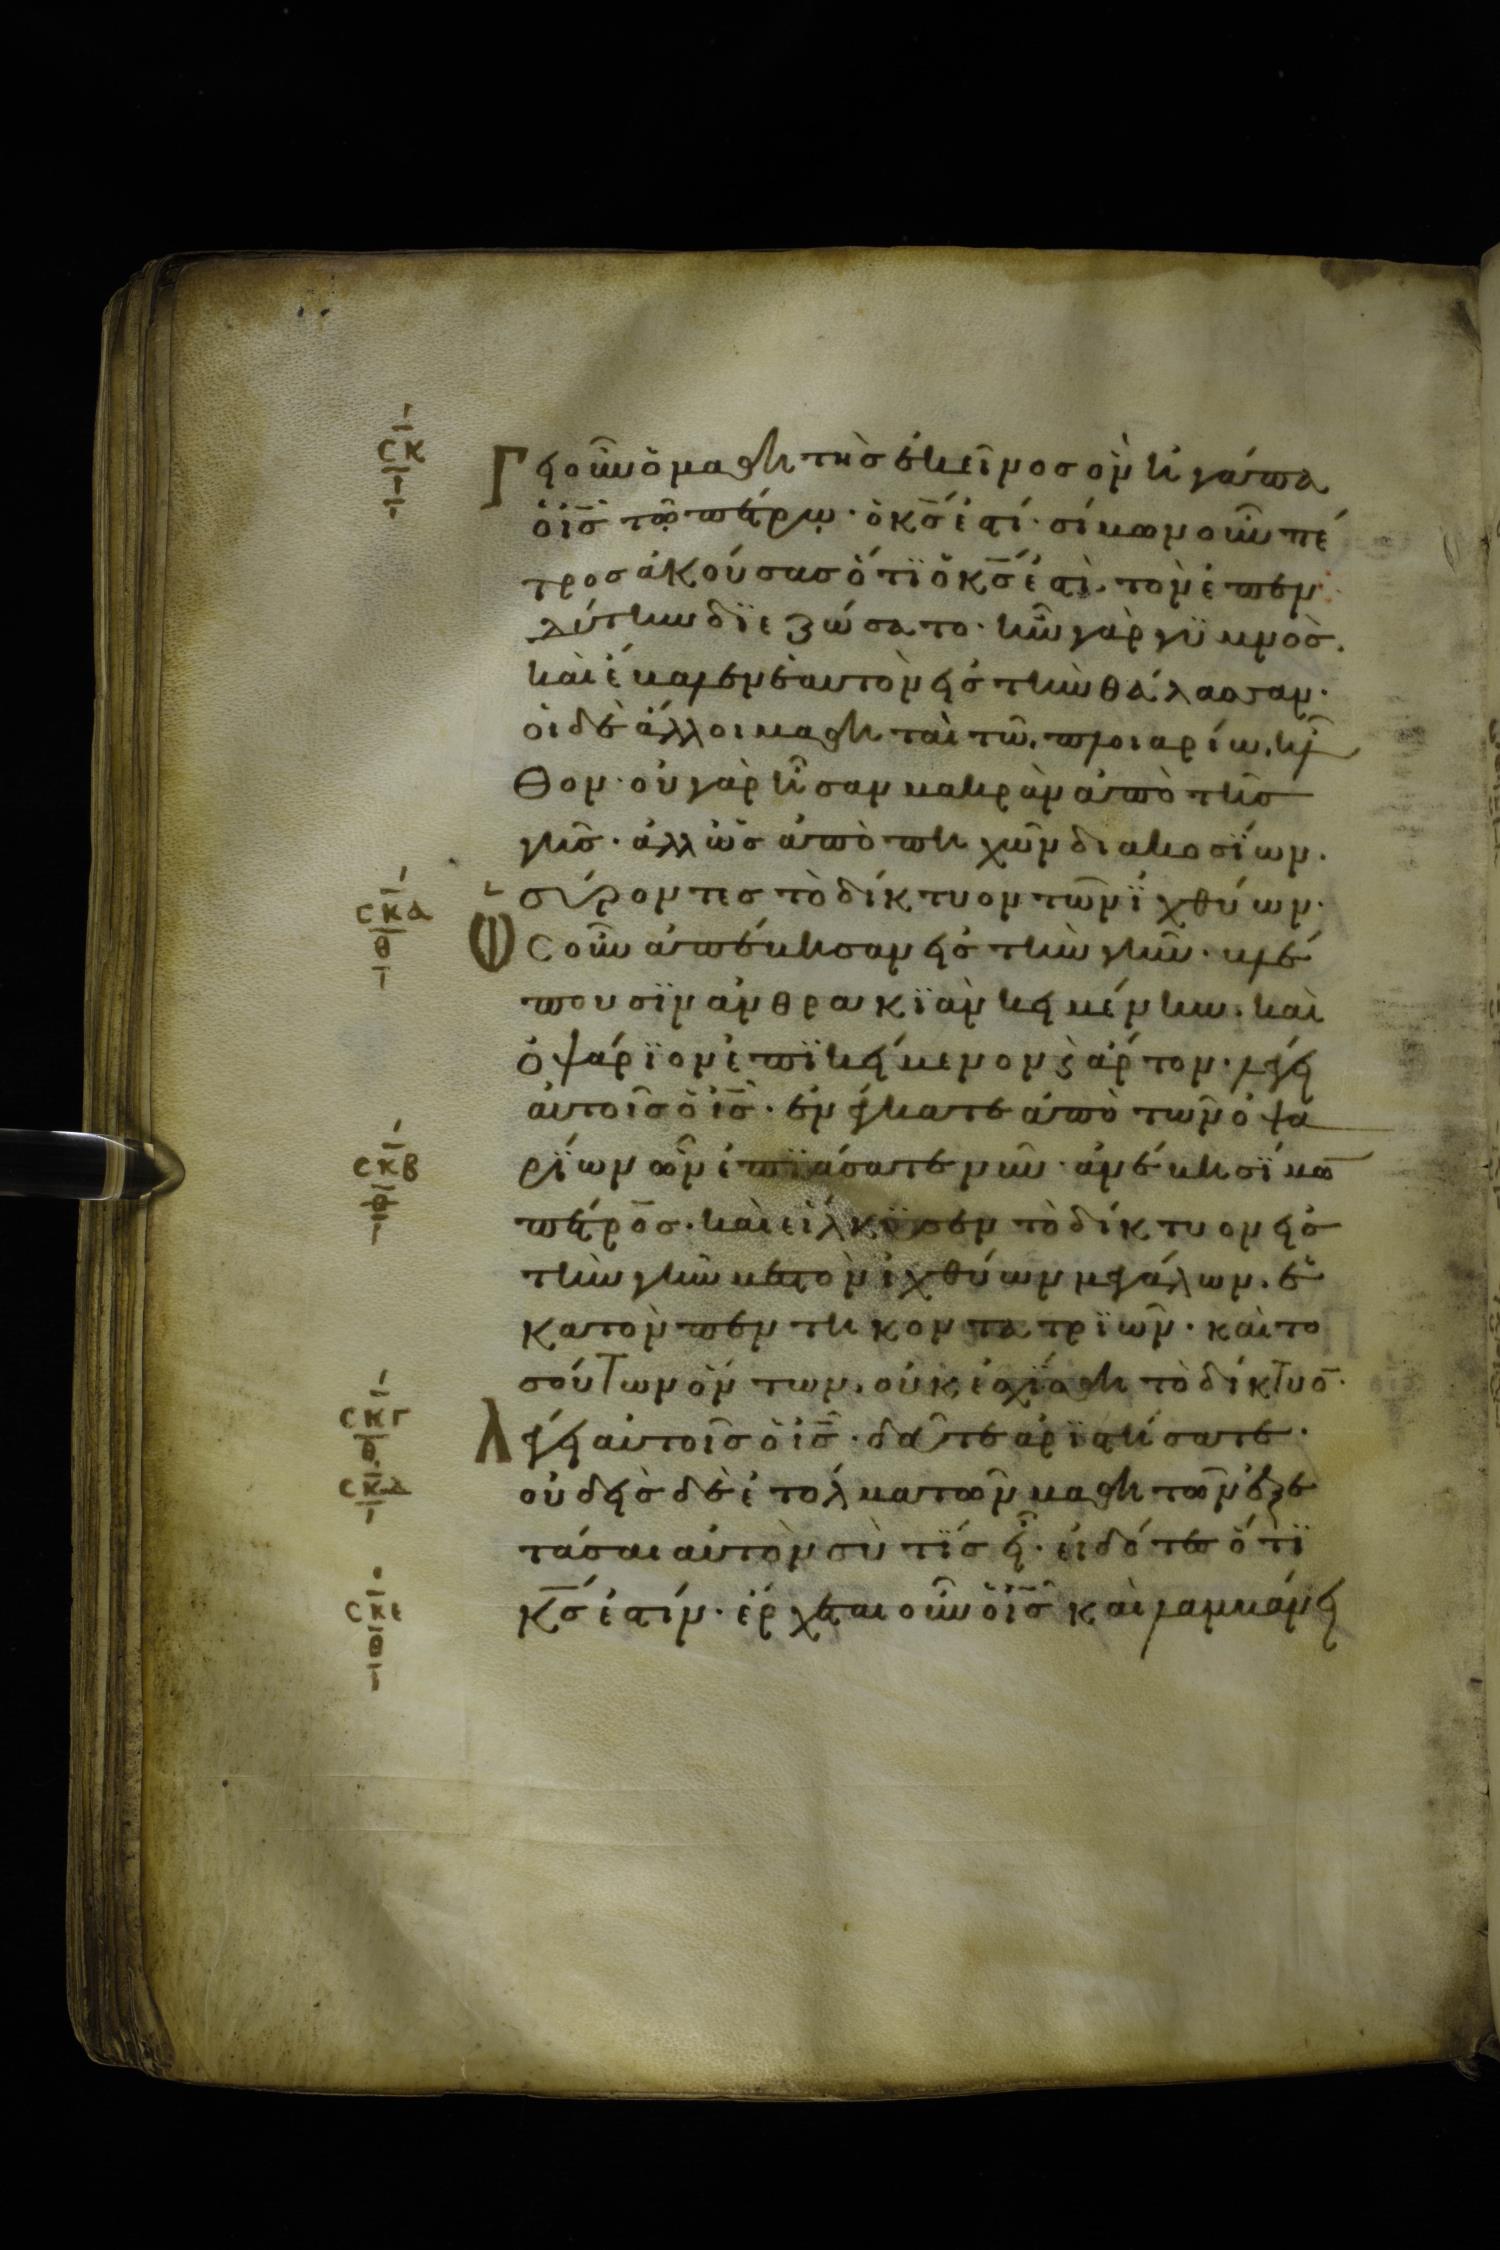 ϲκ
ι
Γει οὖν ὁ μαθητὴσ ἐκεῖνοσ ὃν ἠγάπα
ὁ ι̅σ̅ τῶ πέτρω· ὁ κ̅σ̅ ἐστί· σίμων οὖν πέ
τροσ ἀκούσασ ὅτϊ ὁ κ̅σ̅ ἐστὶ. τὸν ἐπεν
δύτην δϊεζώσατο· ἦν γὰρ γϋμνὸσ.
καὶ ἔβαλεν ἑαυτὸν εἰσ τὴν θάλασσαν·
οἱ δὲ ἄλλοι μαθηταὶ τῶ πλοιαρίω ἦλ
θον· οὐ γὰρ ἦσαν μακρὰν ἀπὸ τῆσ
γῆσ· ἀλλ ὡσ ἀπὸ πηχῶν διακοσΐων.
ϲκα
θ
σύροντεσ τὸ δίκτυον τῶν ϊχθύων·
Ὡσ οὖν ἀπέβησαν εἰσ τὴν γῆν· βλέ
πουσϊν ἀνθρακϊὰν κειμένην. καὶ
ὀψάρϊον ἐπϊκείμενον ϗ ἄρτον· λέγει
αὐτοῖσ ὁ ι̅σ̅· ἐνέγκατε ἀπὸ τῶν ὀψα
ϲκβ
θ
ρϊων ὧν ἐπϊάσατε νῦν· ἀνέβη σϊμω̅
πέτρο̅σ· καὶ εἵλκϋσεν τὸ δίκτυον εἰσ
τὴν γῆν μεστὸν ἰχθύων μεγάλων. ἑ
κατὸν πεντηκονταтρϊῶν· καὶ το
σούτων ὄντων. οὐκ ἐσχΐσθη τὸ δίκτυο̅·
ϲκγ
θ
Λέγει αὐτοῖσ ὁ ι̅σ̅· δεῦτε ἀρϊστήσατε·
ϲκδ
ι
οὐδεὶσ δὲ ἐτόλμα τῶν μαθητῶν ἐξε
τάσαι αὐτὸν σὺ τΐσ εἶ· εἰδότεσ ὅτϊ
ϲκε
θ
κ̅σ̅ ἐστίν· ἔρχεται οὖν ὁ ι̅σ̅ καὶ λαμβάνει